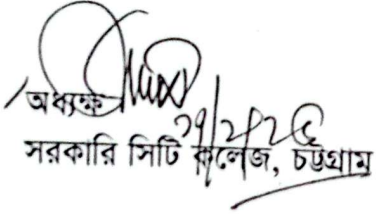 অধ্যক্ষ
সরকারি সিটি কলেজ, চট্টগ্রাম